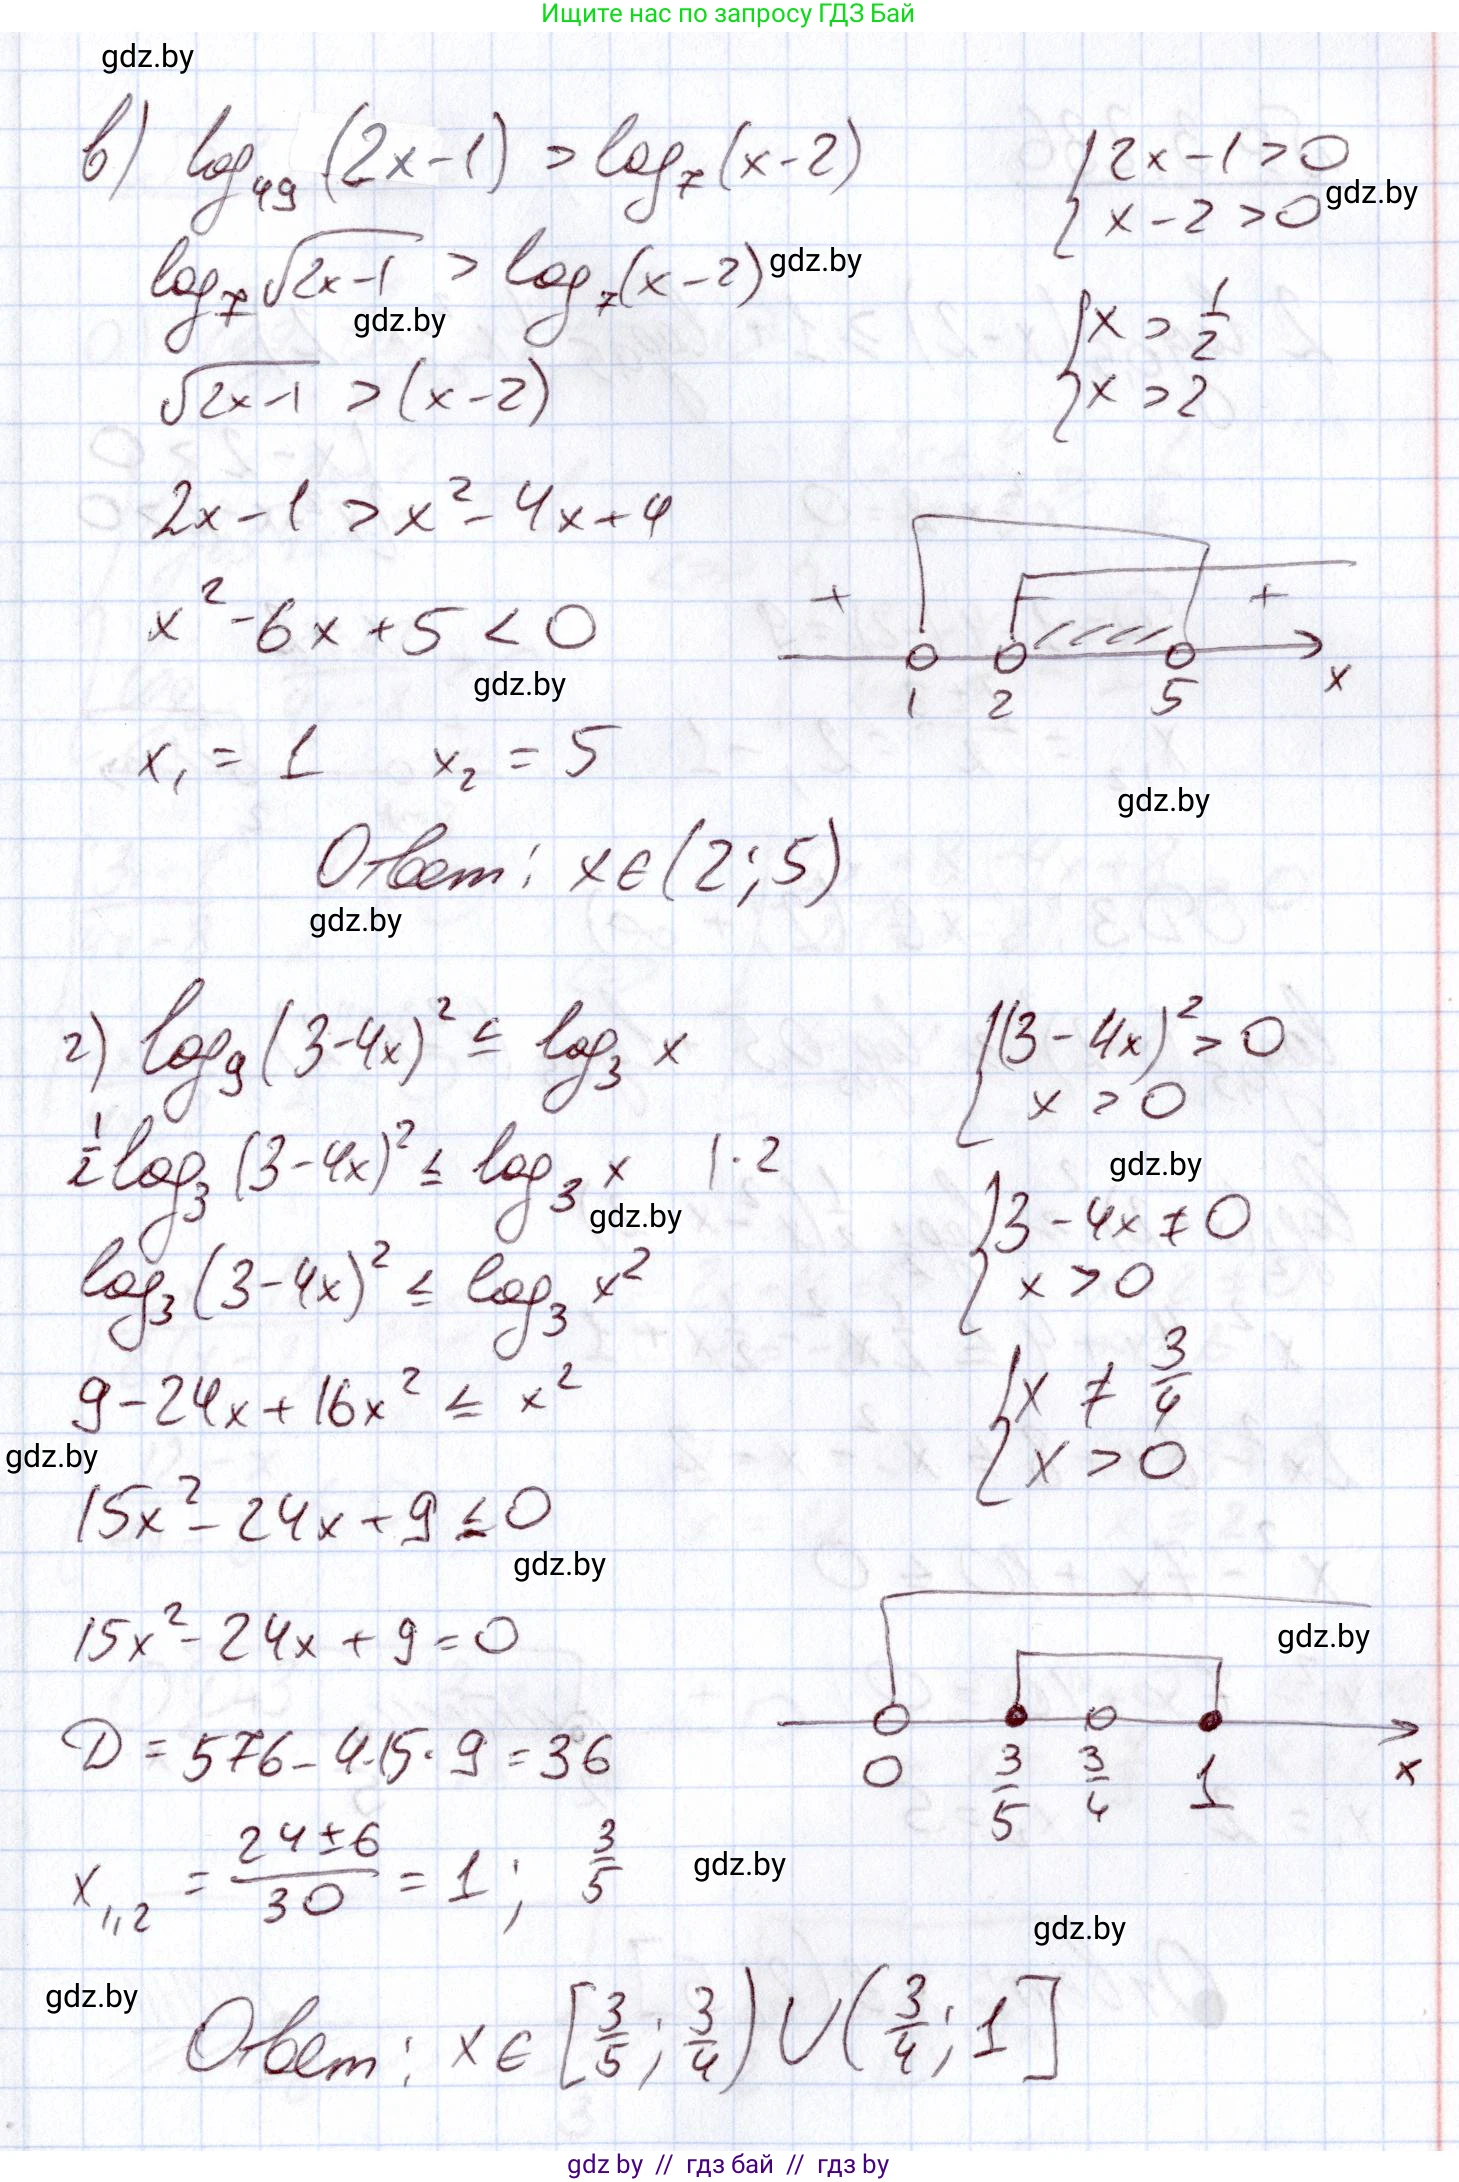 Ищите нас по запросу ГДЗ Бай
gdz.by
в) log₄₉ (2x-1) > log₇ (x-2)
{ 2x-1>0
gdz.by
x-2>0
log₇ √(2x-1) > log₇ (x-2)
gdz.by
gdz.by
{ x > 1/2
x > 2
√(2x-1) > (x-2)
2x-1 > x²-4x+4
x²-6x+5 < 0
+ - +
1 2 5 x
gdz.by
x₁ = 1 x₂ = 5
gdz.by
Ответ: x∈(2;5)
gdz.by
г) log₉ (3-4x)² ≤ log₃ x
{ (3-4x)² > 0
x > 0
1/2 log₃ (3-4x)² ≤ log₃ x |·2
gdz.by
gdz.by
{ 3-4x ≠ 0
x > 0
log₃ (3-4x)² ≤ log₃ x²
{ x ≠ 3/4
x > 0
9-24x+16x² ≤ x²
gdz.by
15x²-24x+9 ≤ 0
gdz.by
15x²-24x+9=0
gdz.by
D = 576-4·15·9 = 36
0 3/5 3/4 1 x
x₁,₂ = (24±6)/30 = 1; 3/5
gdz.by
gdz.by
gdz.by
Ответ: x∈[3/5; 3/4)∪(3/4; 1]
gdz.by // гдз бай // гдз by